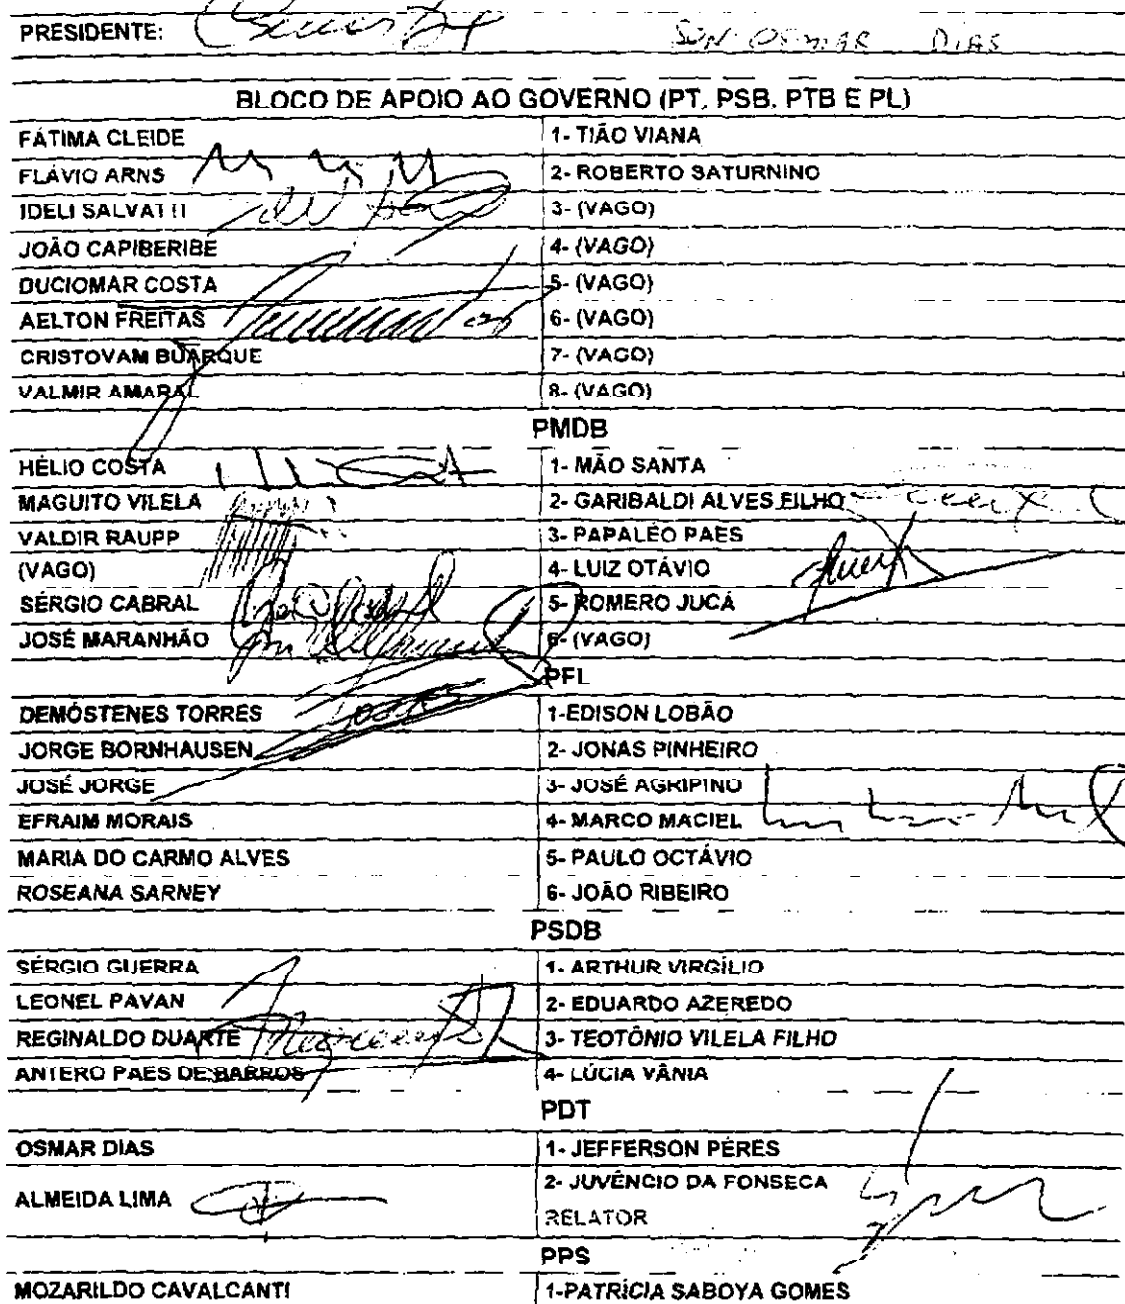 PRESIDENTE: SEN. OSMAR DIAS
BLOCO DE APOIO AO GOVERNO (PT, PSB, PTB E PL)
FÁTIMA CLEIDE 1- TIÃO VIANA
FLÁVIO ARNS 2- ROBERTO SATURNINO
IDELI SALVATTI 3- (VAGO)
JOÃO CAPIBERIBE 4- (VAGO)
DUCIOMAR COSTA 5- (VAGO)
AELTON FREITAS 6- (VAGO)
CRISTOVAM BUARQUE 7- (VAGO)
VALMIR AMARAL 8- (VAGO)
PMDB
HÉLIO COSTA 1- MÃO SANTA
MAGUITO VILELA 2- GARIBALDI ALVES FILHO
VALDIR RAUPP 3- PAPALÉO PAES
(VAGO) 4- LUIZ OTÁVIO
SÉRGIO CABRAL 5- ROMERO JUCÁ
JOSÉ MARANHÃO 6- (VAGO)
PFL
DEMÓSTENES TORRES 1-EDISON LOBÃO
JORGE BORNHAUSEN 2- JONAS PINHEIRO
JOSÉ JORGE 3- JOSÉ AGRIPINO
EFRAIM MORAIS 4- MARCO MACIEL
MARIA DO CARMO ALVES 5- PAULO OCTÁVIO
ROSEANA SARNEY 6- JOÃO RIBEIRO
PSDB
SÉRGIO GUERRA 1- ARTHUR VIRGÍLIO
LEONEL PAVAN 2- EDUARDO AZEREDO
REGINALDO DUARTE 3- TEOTÔNIO VILELA FILHO
ANTERO PAES DE BARROS 4- LÚCIA VÂNIA
PDT
OSMAR DIAS 1- JEFFERSON PÉRES
ALMEIDA LIMA 2- JUVÊNCIO DA FONSECA
RELATOR
PPS
MOZARILDO CAVALCANTI 1-PATRÍCIA SABOYA GOMES